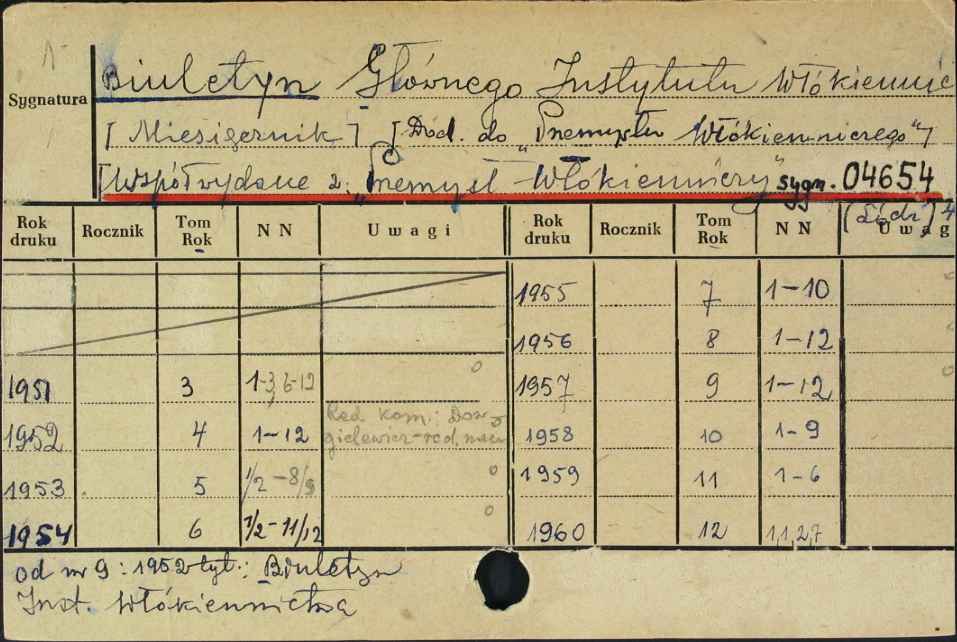 Sygnatura
Biuletyn Głównego Instytutu Włókiennic
[Miesięcznik] [Dod. do „Przemysłu Włókienniczego"]
[Współwydane z: „Przemysł Włókienniczy" sygn. 04654
[Łódź] 4
Rok druku Rocznik Tom Rok NN Uwagi Rok druku Rocznik Tom Rok NN Uwag
1955 7 1-10
1956 8 1-12
1951 3 1-3, 6-12 1957 9 1-12
1952 4 1-12 Red. kom.: 1958 10 1-9
1953 5 1/2-8/9 1959 11 1-6
1954 6 1/2-11/12 1960 12 1,1,2,7
od nr 9: 1952 tyt.: Biuletyn
Inst. Włókiennictwa